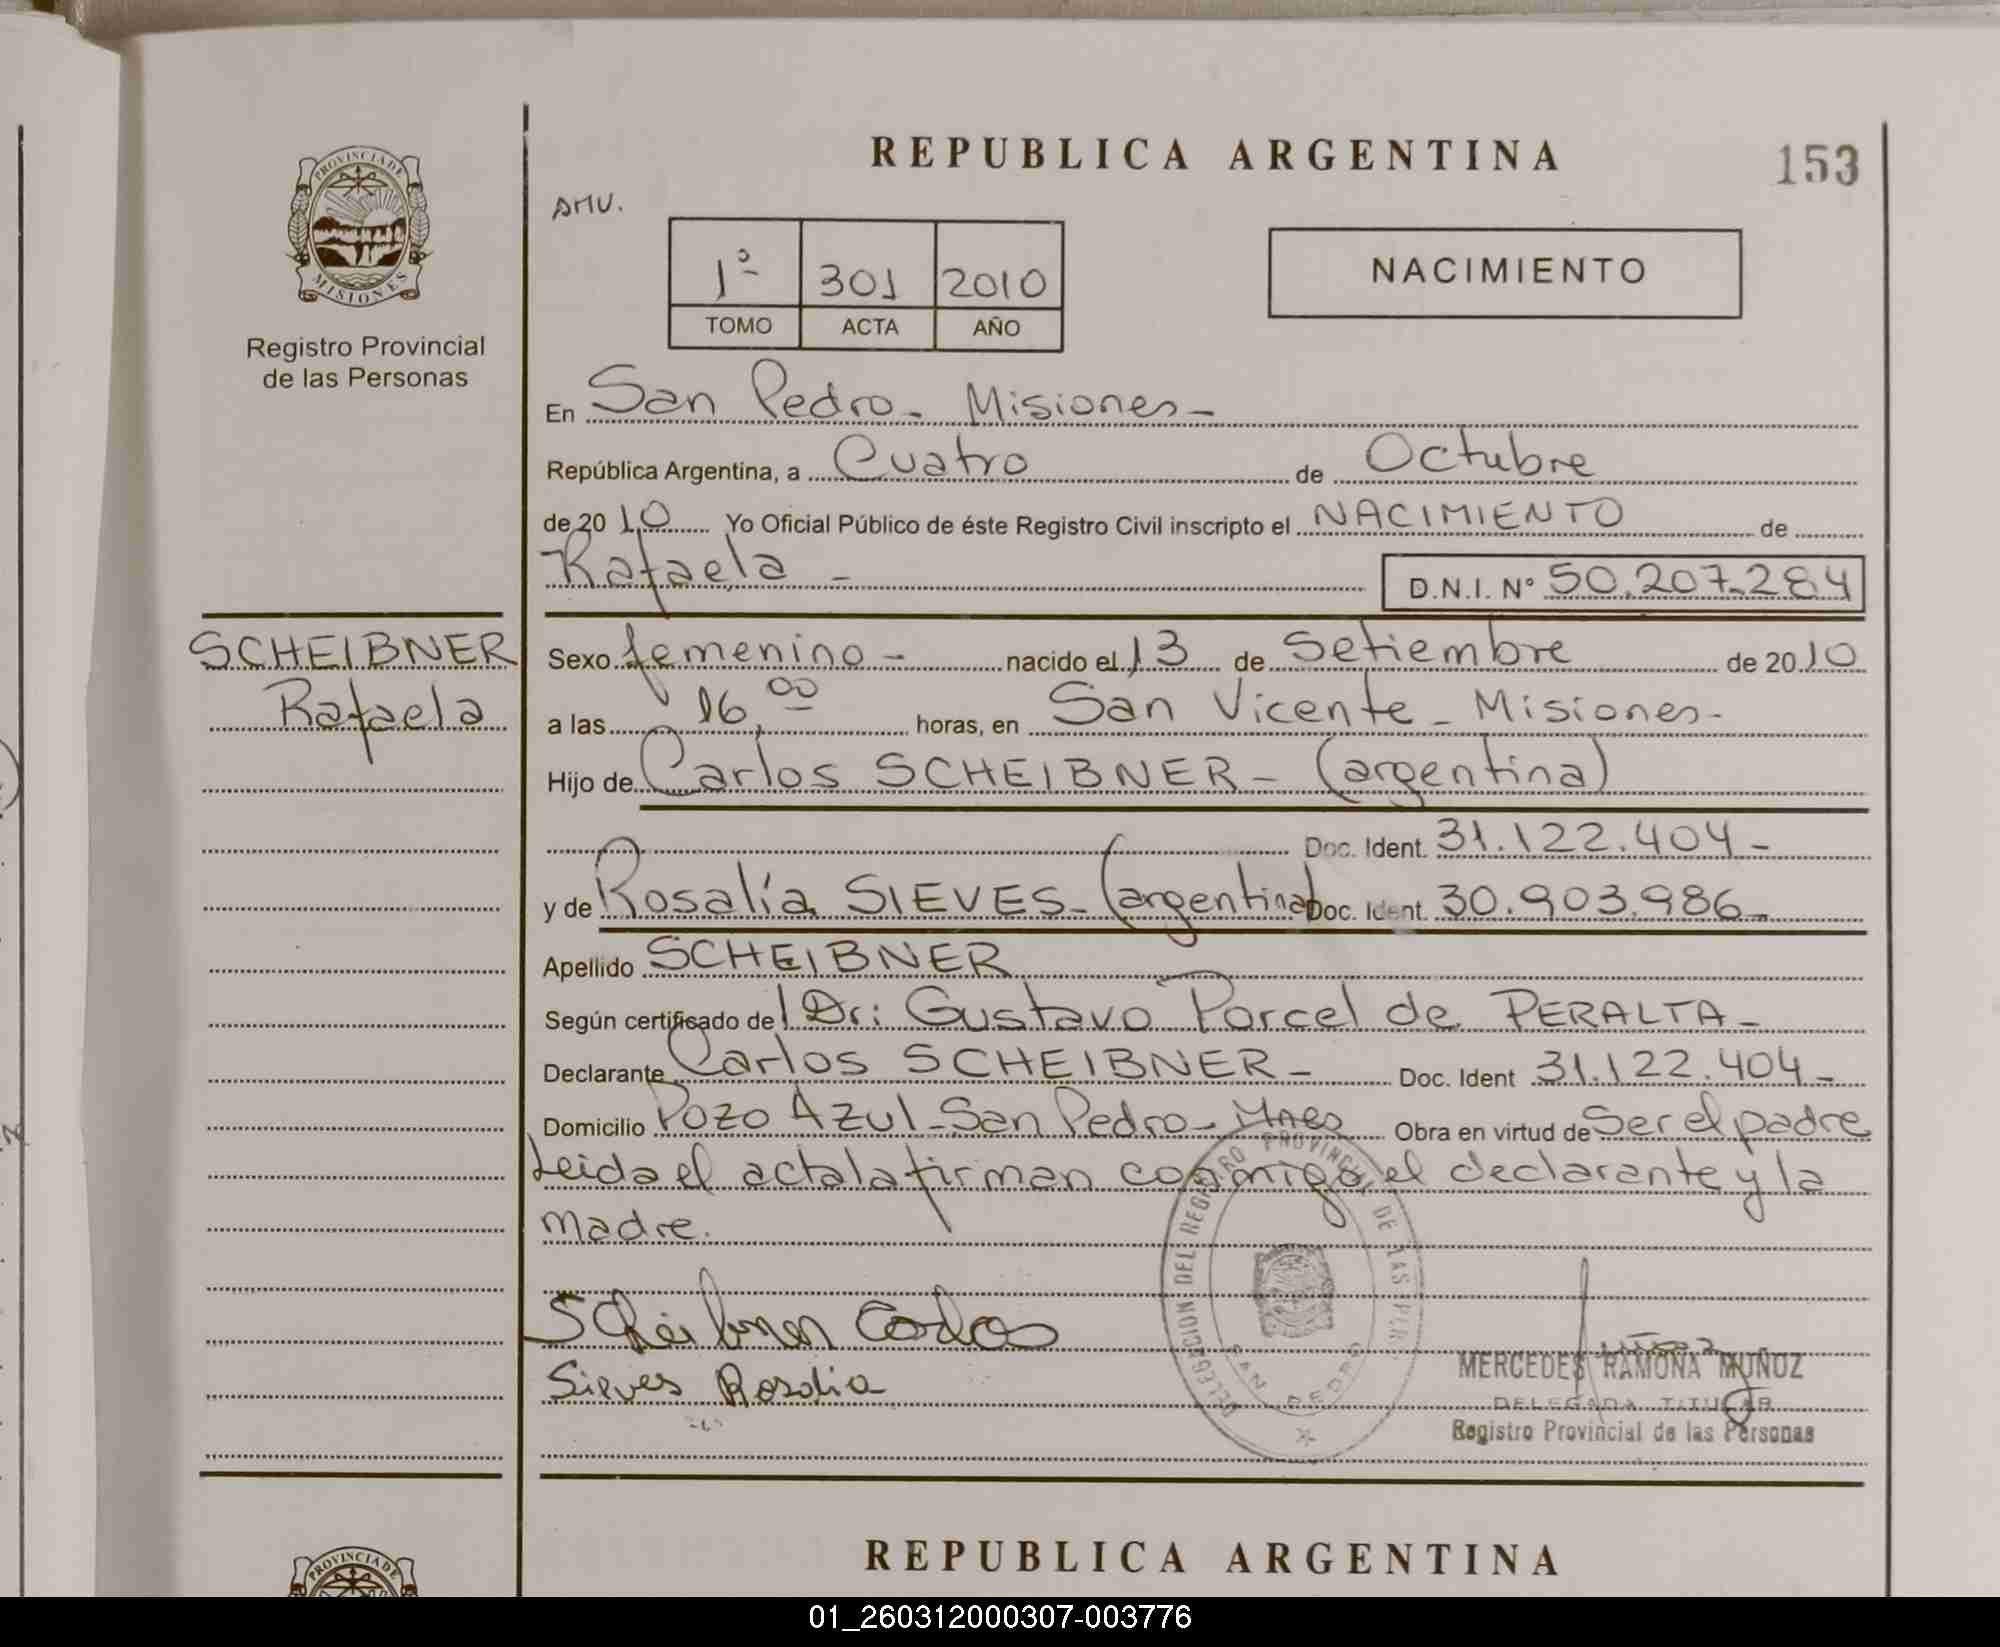 REPUBLICA ARGENTINA
153
PROVINCIA DE MISIONES
Registro Provincial
de las Personas
AMU.
1º 301 2010
TOMO ACTA AÑO
NACIMIENTO
En San Pedro - Misiones -
República Argentina, a Cuatro de Octubre
de 2010 Yo Oficial Público de éste Registro Civil inscripto el NACIMIENTO de
Rafaela -
D.N.I. Nº 50.207.284
SCHEIBNER
Rafaela
Sexo femenino - nacido el 13 de Setiembre de 2010
a las 16,00 horas, en San Vicente - Misiones -
Hijo de Carlos SCHEIBNER - (argentina)
Doc. Ident. 31.122.404 -
y de Rosalía SIEVES - (argentina) Doc. Ident. 30.903.986 -
Apellido SCHEIBNER
Según certificado del Dr: Gustavo Porcel de PERALTA -
Declarante Carlos SCHEIBNER - Doc. Ident 31.122.404 -
Domicilio Pozo Azul - San Pedro - Mnes Obra en virtud de Ser el padre
Leida el acta la firman conmigo el declarante y la
madre.
DELEGACION DEL REGISTRO PROVINCIAL DE LAS PER.
SAN PEDRO
Scheibner Carlos
Sieves Rosalia
MERCEDES RAMONA MUÑOZ
DELEGADA TITULAR
Registro Provincial de las Personas
REPUBLICA ARGENTINA
PROVINCIA DE
01_260312000307-003776